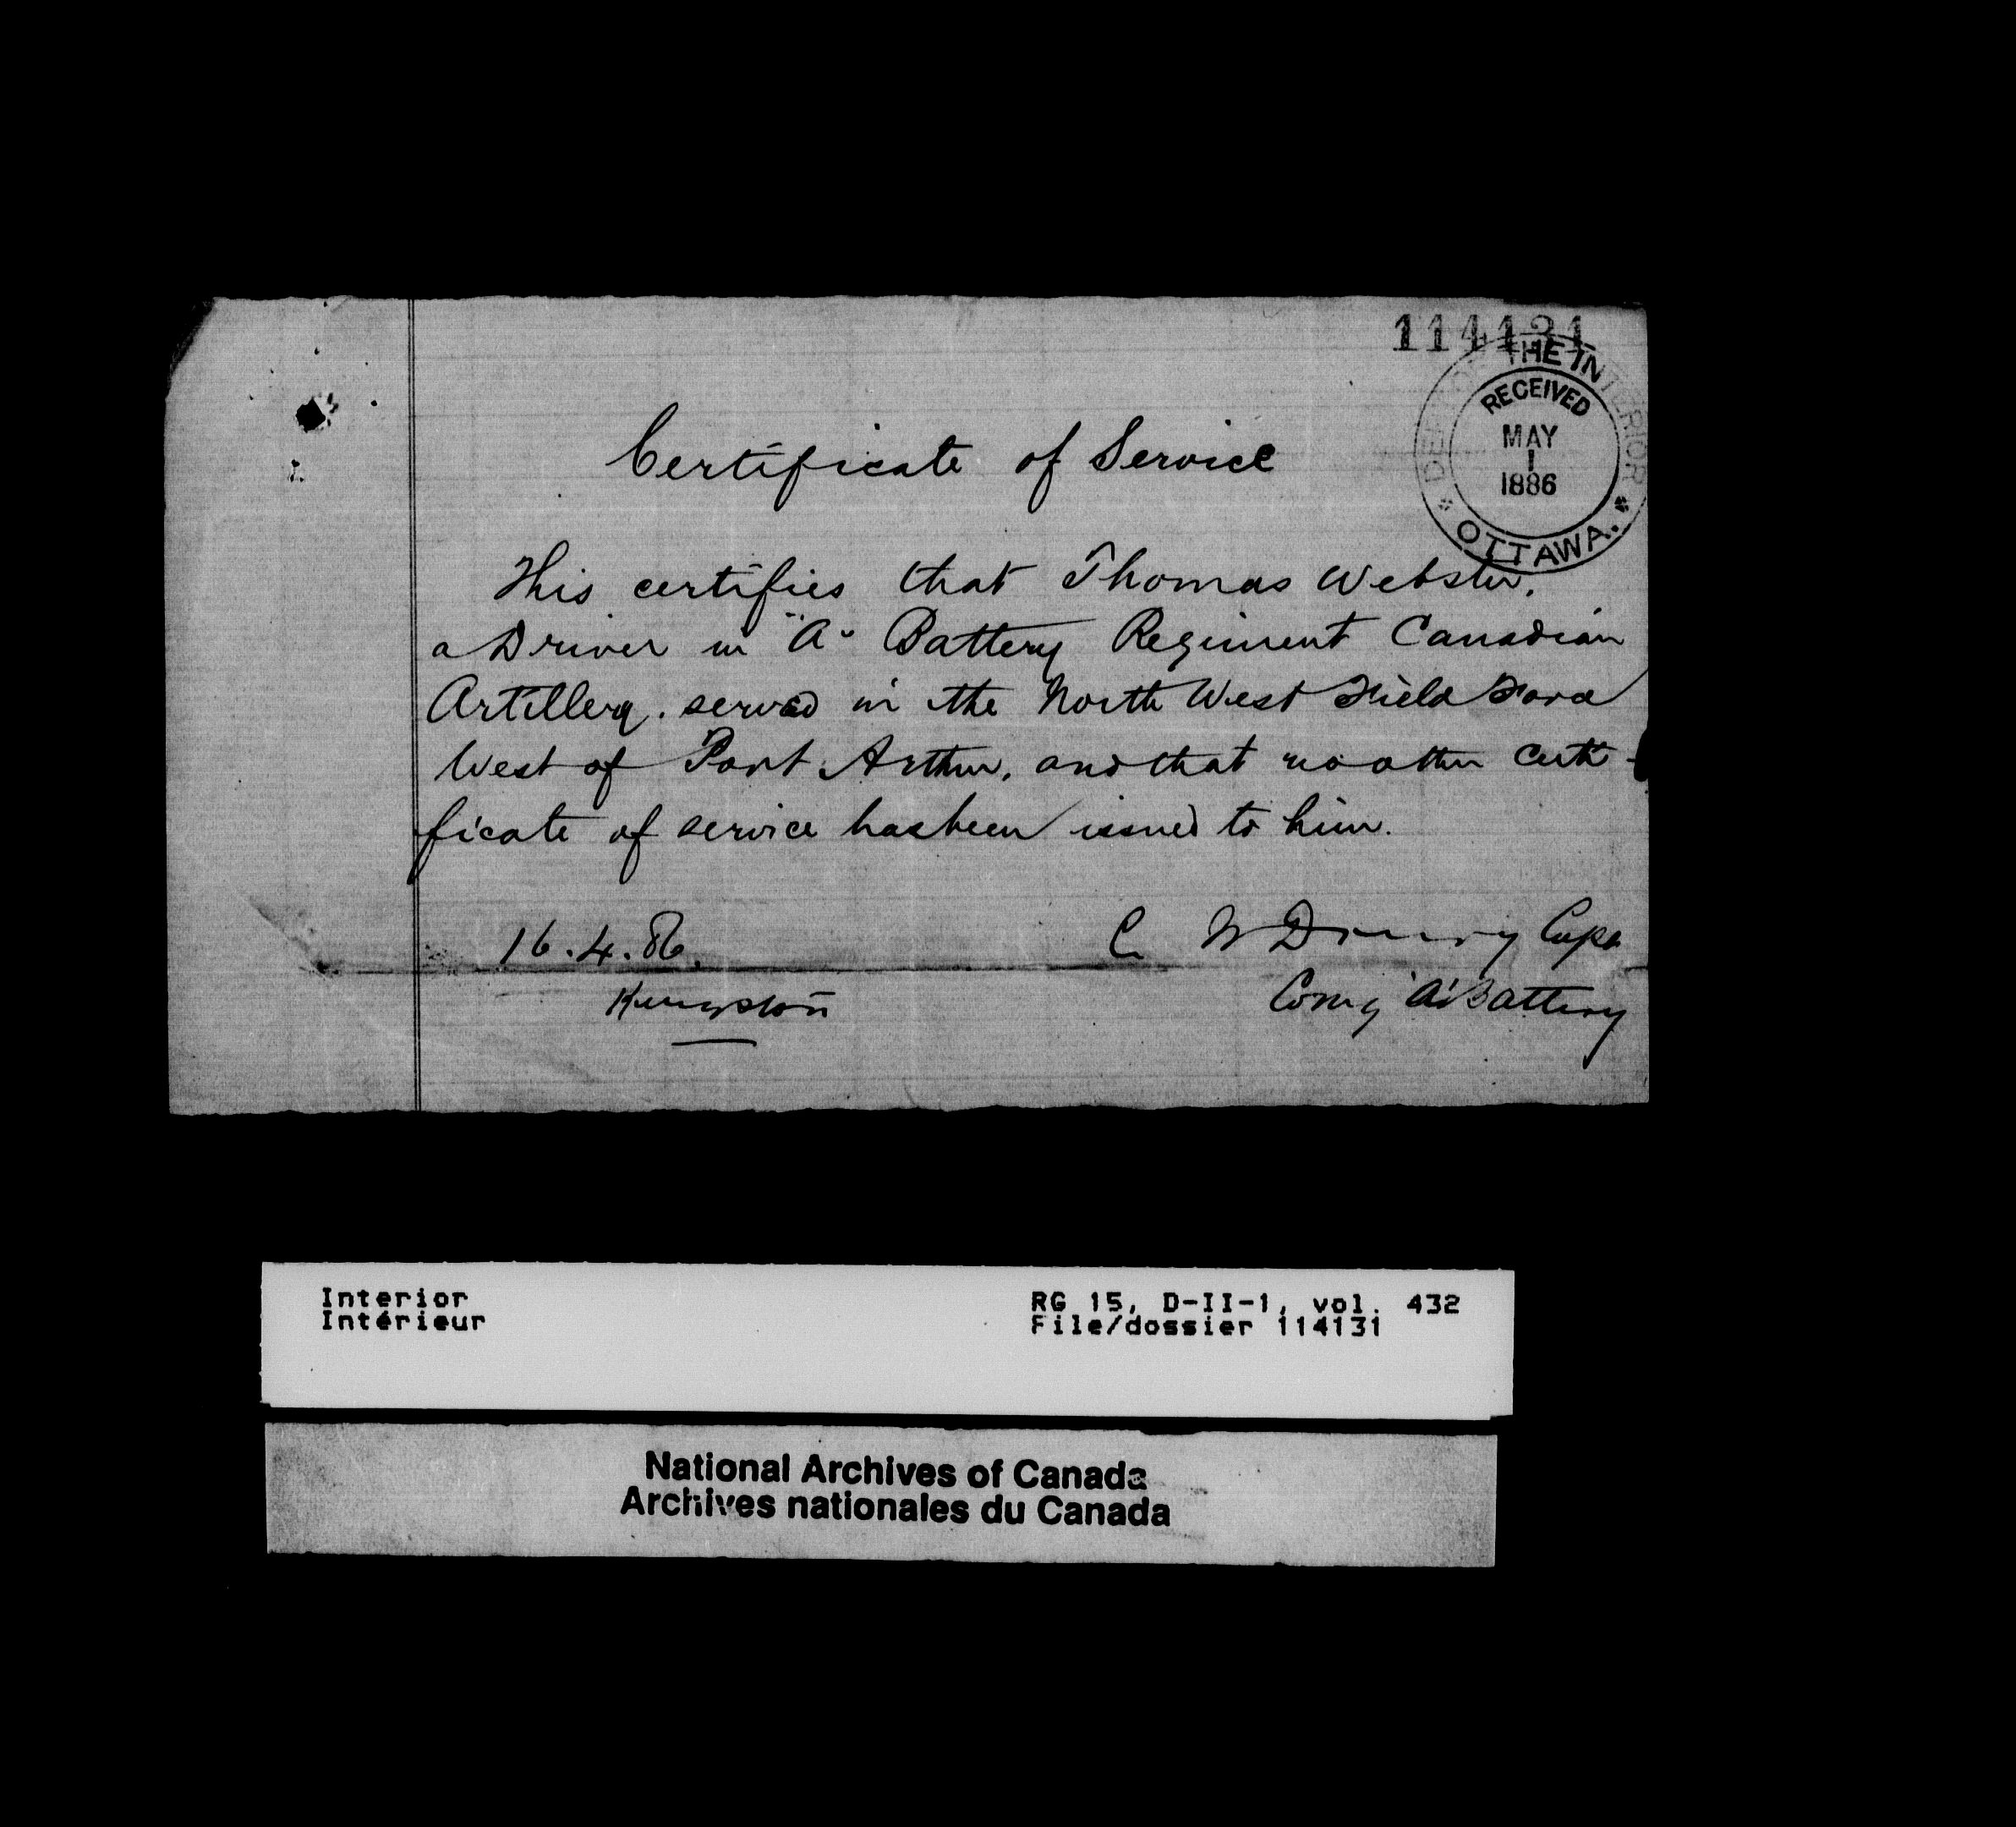 114131
DEPT OF THE INTERIOR
RECEIVED
MAY
1
1886
* OTTAWA. *
Certificate of Service
This certifies that Thomas Webster,
a Driver in "A" Battery Regiment Canadian
Artillery. served in the North West Field Force
West of Port Arthur, and that no other certi-
ficate of service has been issued to him.
16.4.86.
C W Drury Capt
Kingston
Comg 'A' Battery
Interior
Intérieur
RG 15, D-II-1, vol. 432
File/dossier 114131
National Archives of Canada
Archives nationales du Canada